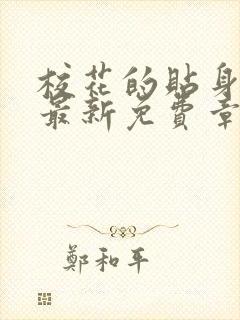 校花的貼身
最新免費章
鄭和平